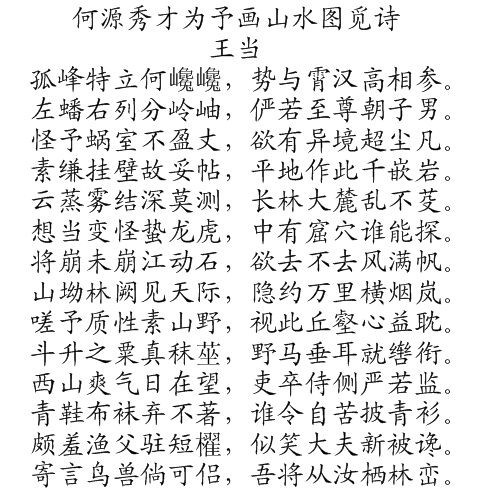 何源秀才为予画山水图觅诗
王当
孤峰特立何巉巉，势与霄汉高相参。
左蟠右列分岭岫，俨若至尊朝子男。
怪予蜗室不盈丈，欲有异境超尘凡。
素缣挂壁故妥帖，平地作此千嵌岩。
云蒸雾结深莫测，长林大麓乱不芟。
想当变怪蛰龙虎，中有窟穴谁能探。
将崩未崩江动石，欲去不去风满帆。
山坳林阙见天际，隐约万里横烟岚。
嗟予质性素山野，视此丘壑心益耽。
斗升之粟真秣莝，野马垂耳就辔衔。
西山爽气日在望，吏卒侍侧严若监。
青鞋布袜弃不著，谁令自苦披青衫。
颇羞渔父驻短櫂，似笑大夫新被谗。
寄言鸟兽倘可侣，吾将从汝栖林峦。